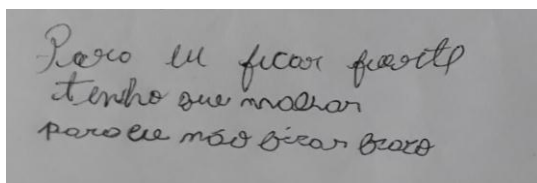 Para eu ficar fuerte
tenho que malhar
para eu não ficar fraco